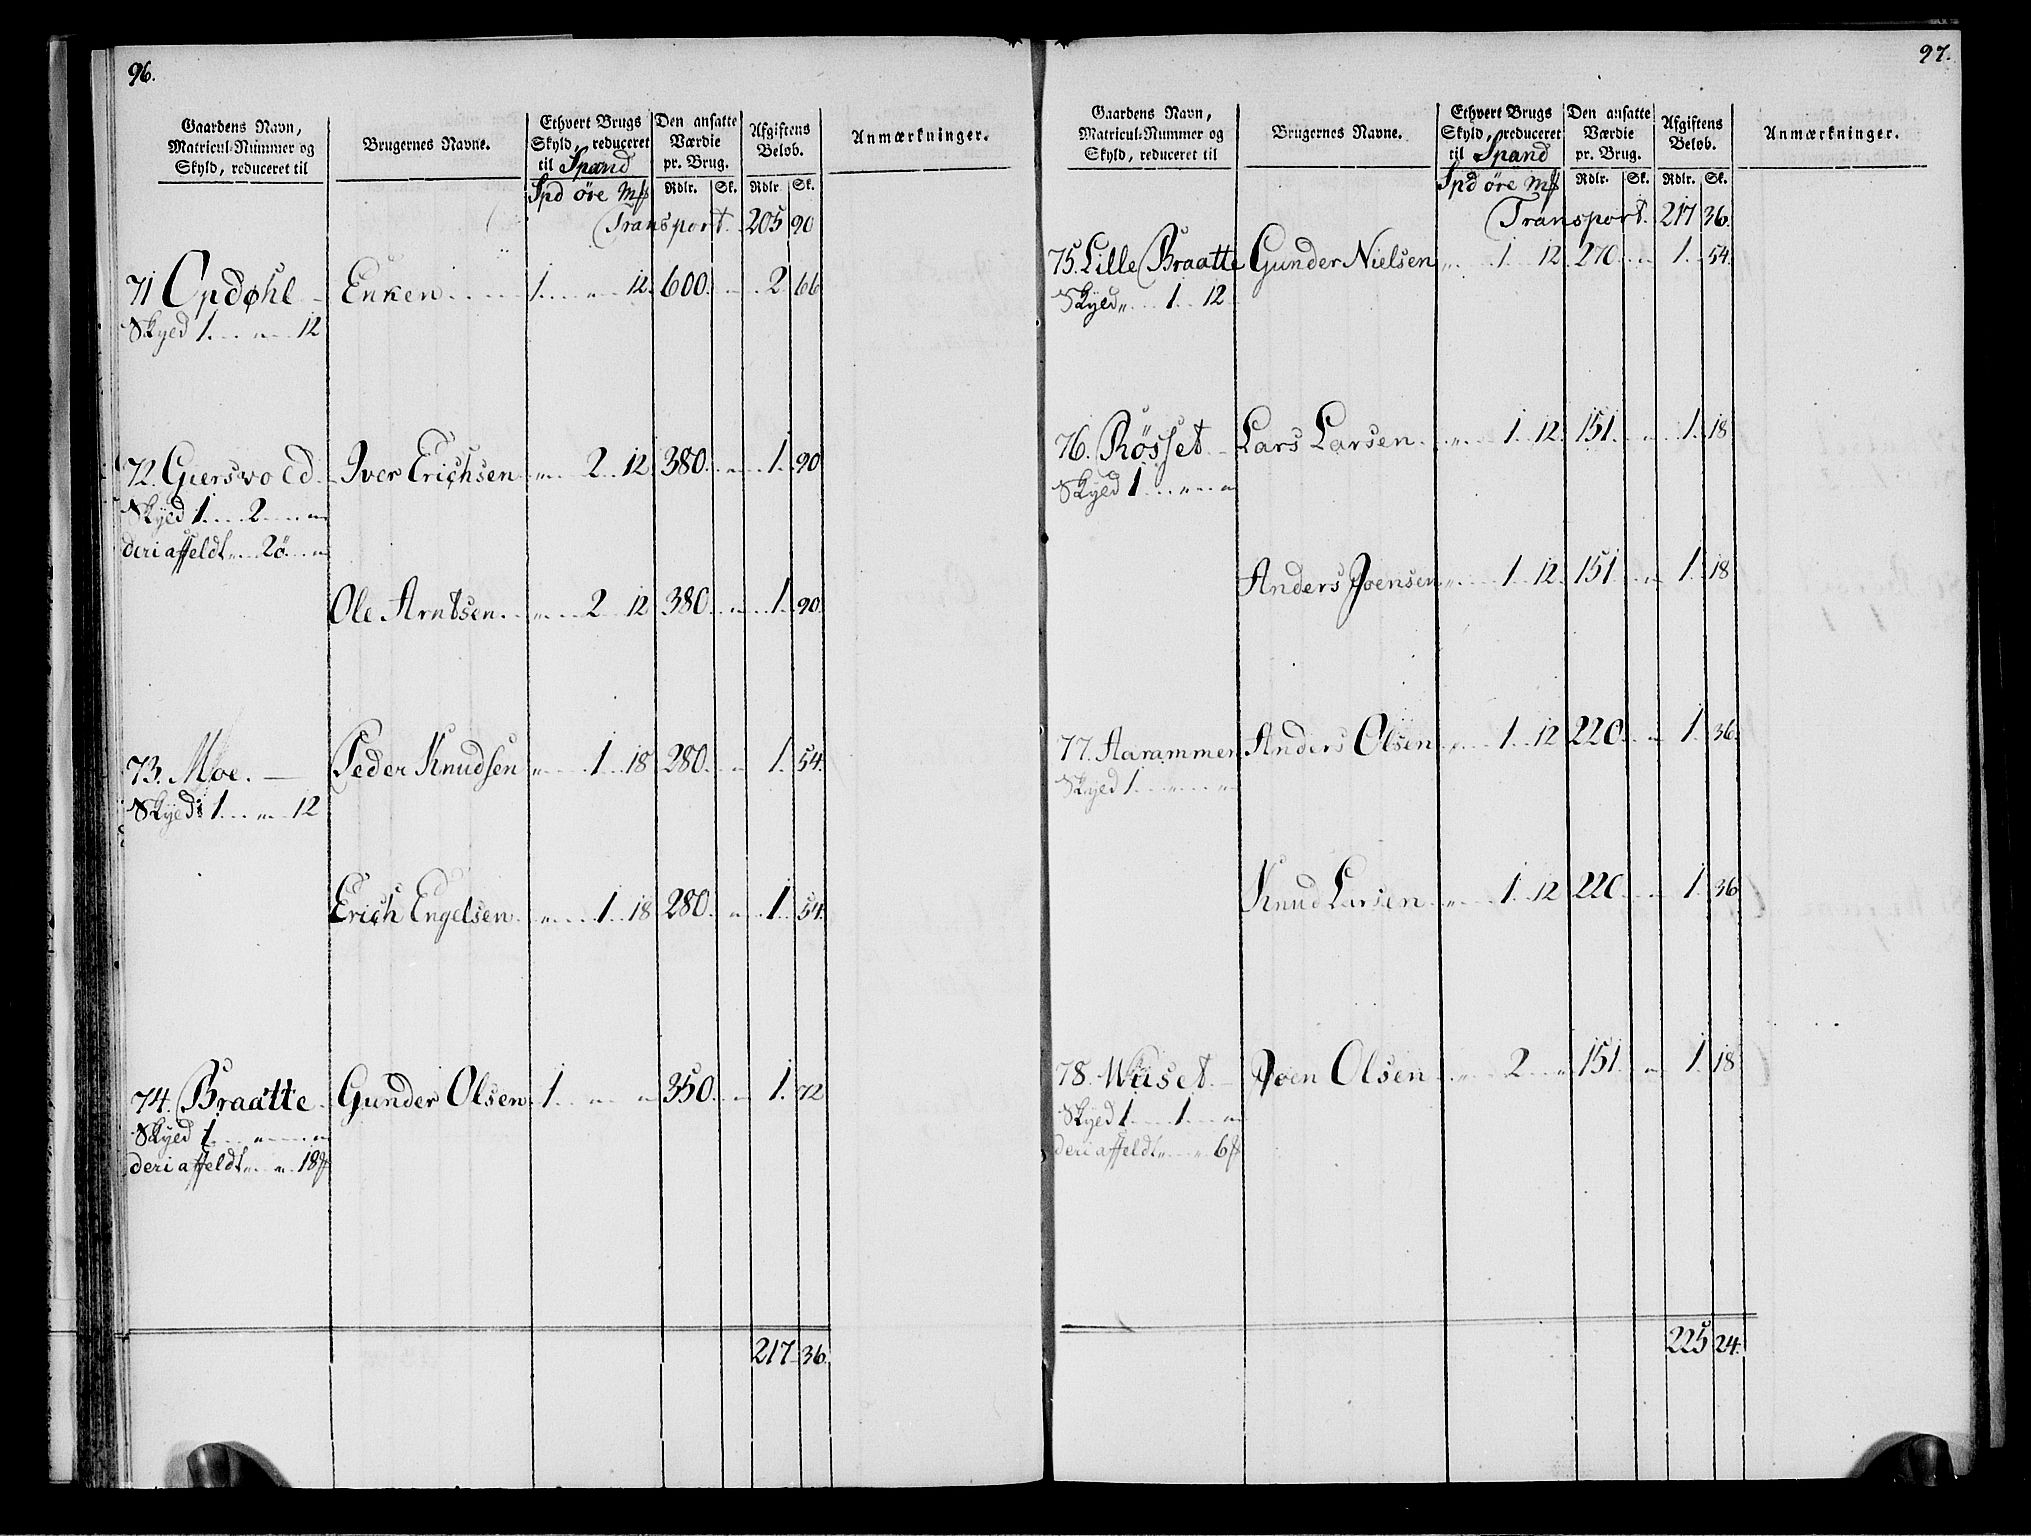 96.
Gaardens Navn, Matricul-Nummer og Skyld, reduceret til
Brugernes Navne.
Ethvert Brugs Skyld, reduceret til Spand
Den ansatte Værdie pr. Brug.
Afgiftens Beløb.
Anmærkninger.
Spd öre m͠ß Rdlr. Sk. Rdlr. Sk.
Transport. 205 90
71 Opdøhl Enken 1 " 12. 600. " 2 66
Skyld 1. " 12
72. Giersvold Iver Erichsen " 2 12 380. " 1. 90
Skyld 1 2 "
deri affeldt " 2ö "
Ole Arntsen " 2 12 380. " 1. 90.
73. Moe. Peder Knudsen " 1 18 280. " 1. 54.
Skyld 1. " 12
Erich Engelsen " 1 18 280. " 1 54.
74. Braatte Gunder Olsen 1 " " 350. " 1. 72
Skyld 1 " "
deri affeldt " " 18ß
217 36.
97.
Gaardens Navn, Matricul-Nummer og Skyld, reduceret til
Brugernes Navne.
Ethvert Brugs Skyld, reduceret til Spand
Den ansatte Værdie pr. Brug.
Afgiftens Beløb.
Anmærkninger.
Spd öre m͠ß Rdlr. Sk. Rdlr. Sk.
Transport. 217 36.
75. Lille Braatte Gunder Nielsen " 1 12. 270 " 1 54.
Skyld " 1 12
76. Rösset Lars Larsen " 1 12. 151. " 1. 18
Skyld 1 " "
Anders Joensen " 1 12. 151. " 1. 18
77. Aarammen Anders Olsen " 1 12 220 " 1. 36.
Skyld 1 " "
Knud Larsen " 1 12 220 " 1. 36
78. Wuset Joen Olsen " 2 " 151. " 1. 18
Skyld 1 1 "
deri affeldt " " 6ß
225 24.